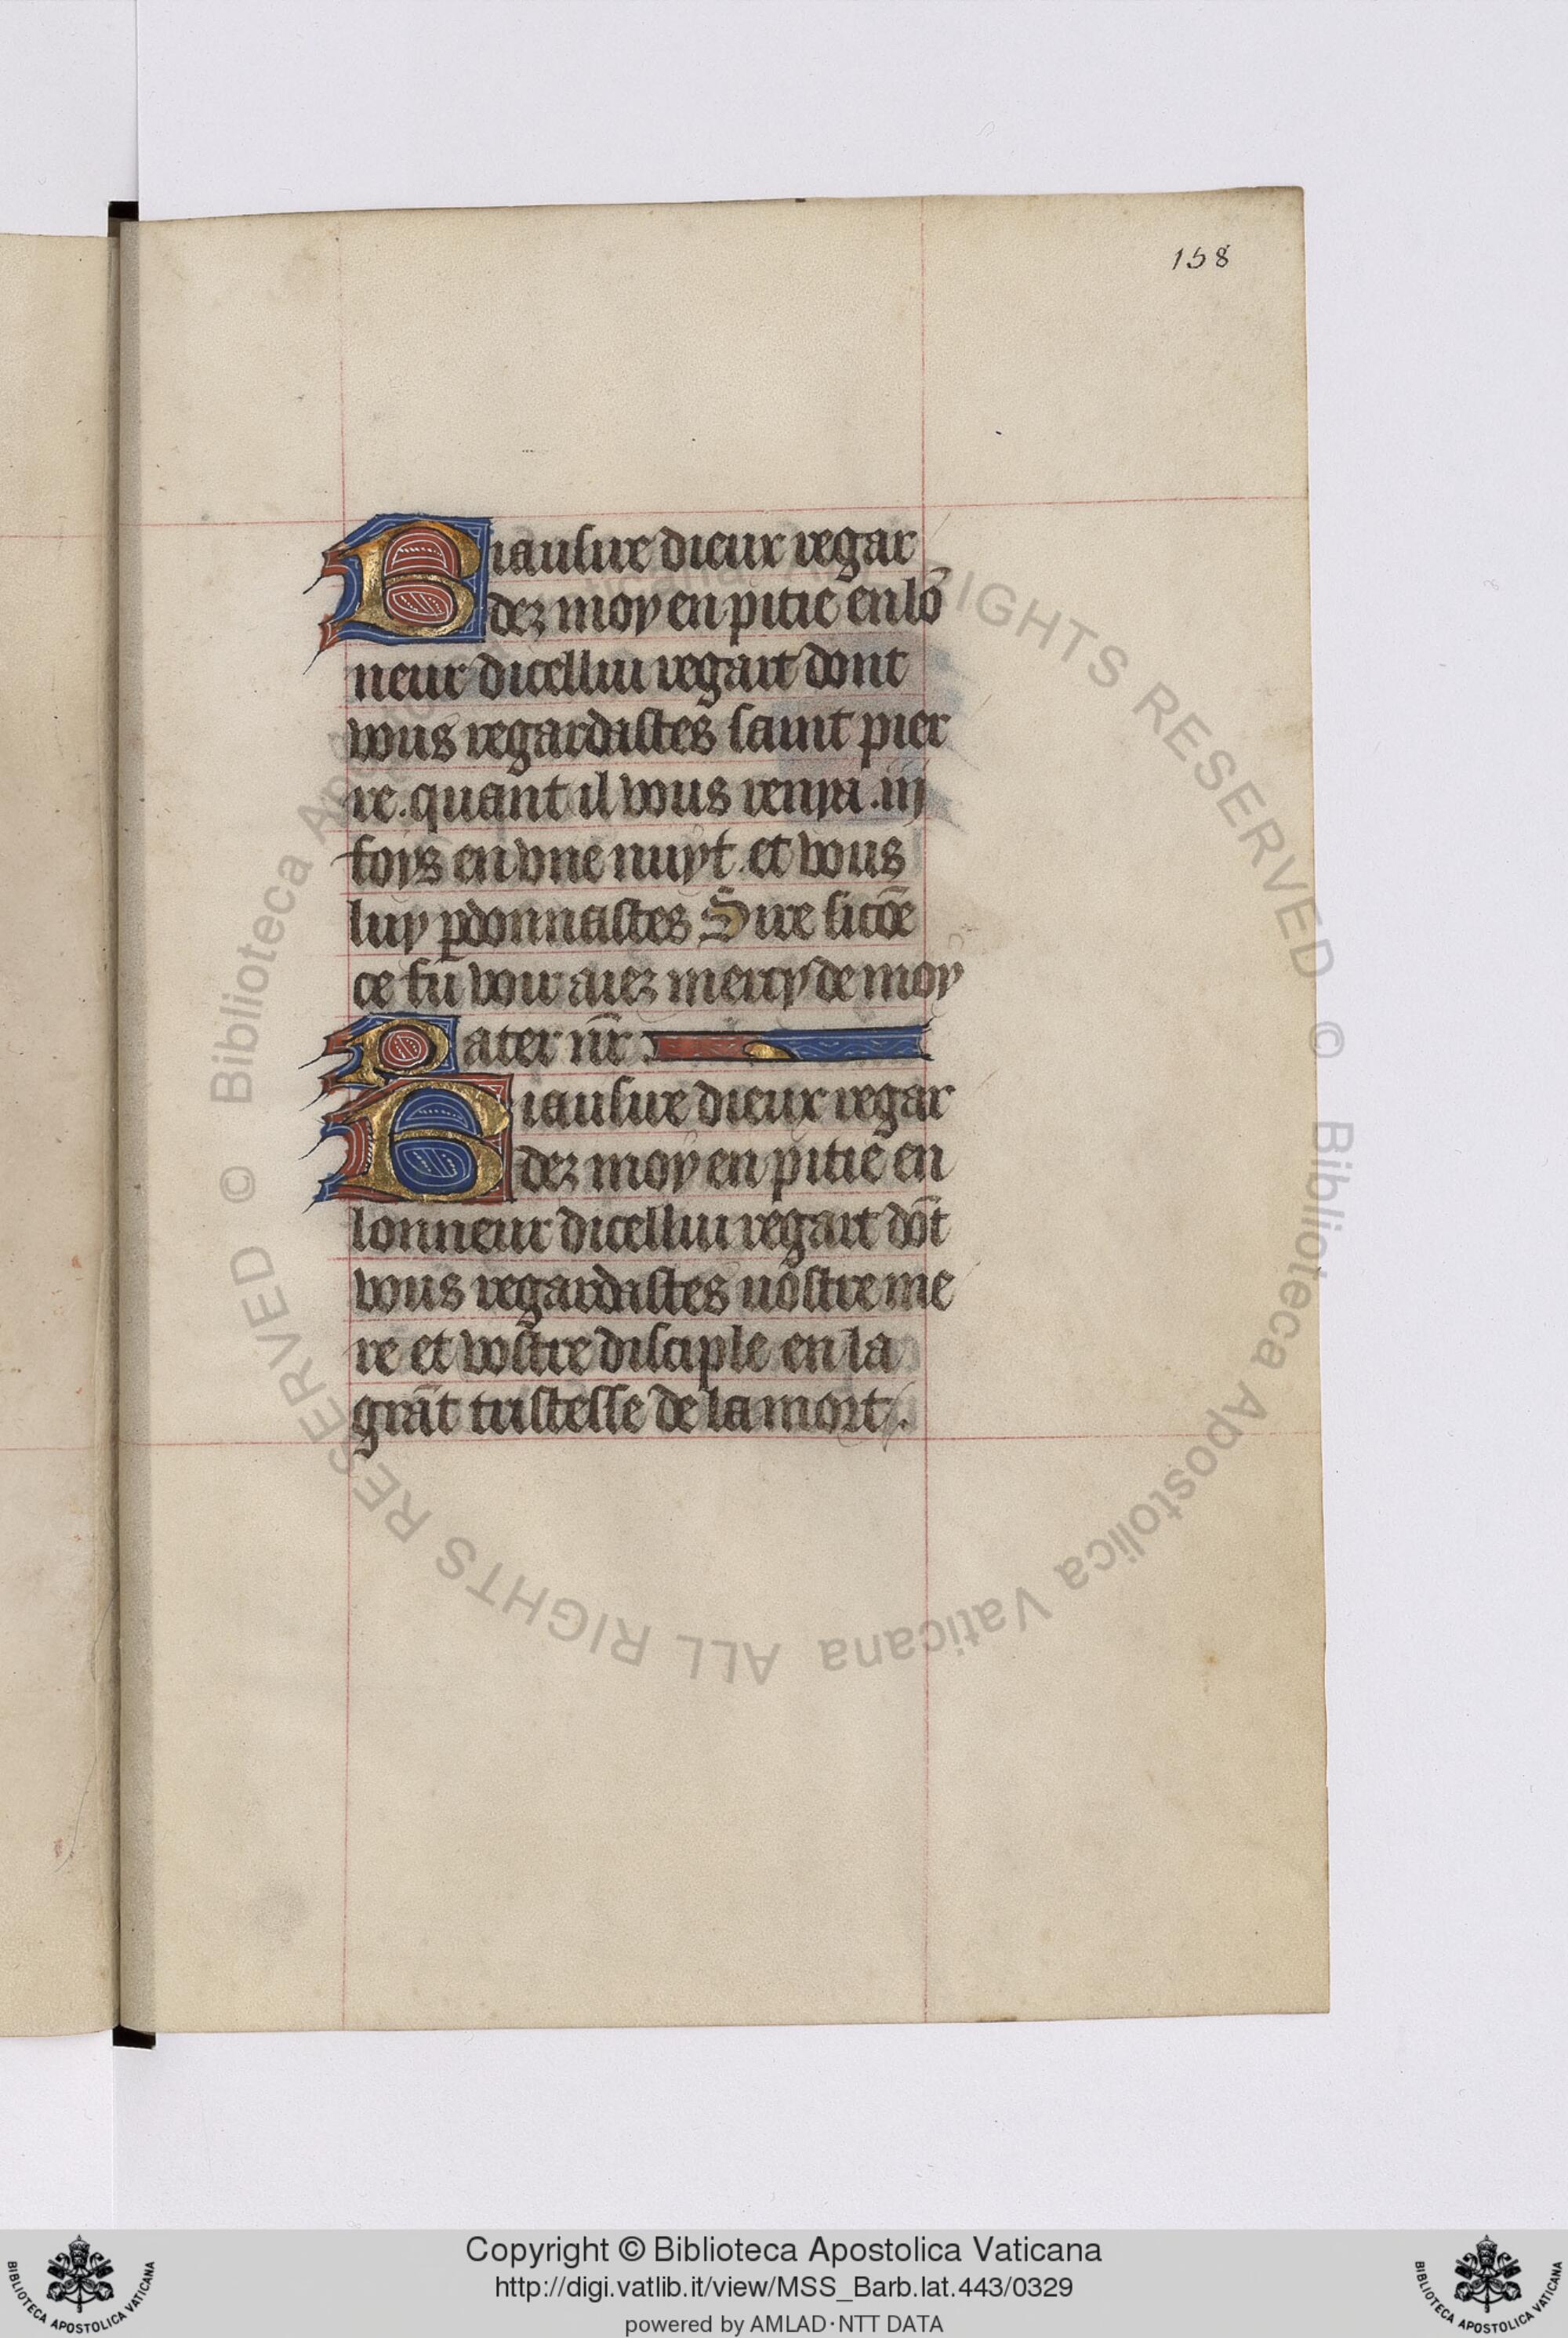 158
Biausire dieux regar
dez moy en pitie en lō
neur dicelluy regart dont
vous regardastes saint pier
re. quant il vous renya .iij
foys en vne nuyt. et vous
luy ꝑdonnastes Sire sicōe
ce fu voir aiez mercy de moy
Pater nr̄
Biausire dieux regar
dez moy en pitie en
lonneur dicelluy regart dōt
vous regardastes uostre me
re et vostre disciple en la
grāt tristesse de la mort.
© Biblioteca Apostolica Vaticana ALL RIGHTS RESERVED
© Biblioteca Apostolica Vaticana ALL RIGHTS RESERVED
Copyright © Biblioteca Apostolica Vaticana
http://digi.vatlib.it/view/MSS_Barb.lat.443/0329
powered by AMLAD·NTT DATA
BIBLIOTECA APOSTOLICA VATICANA
BIBLIOTECA APOSTOLICA VATICANA